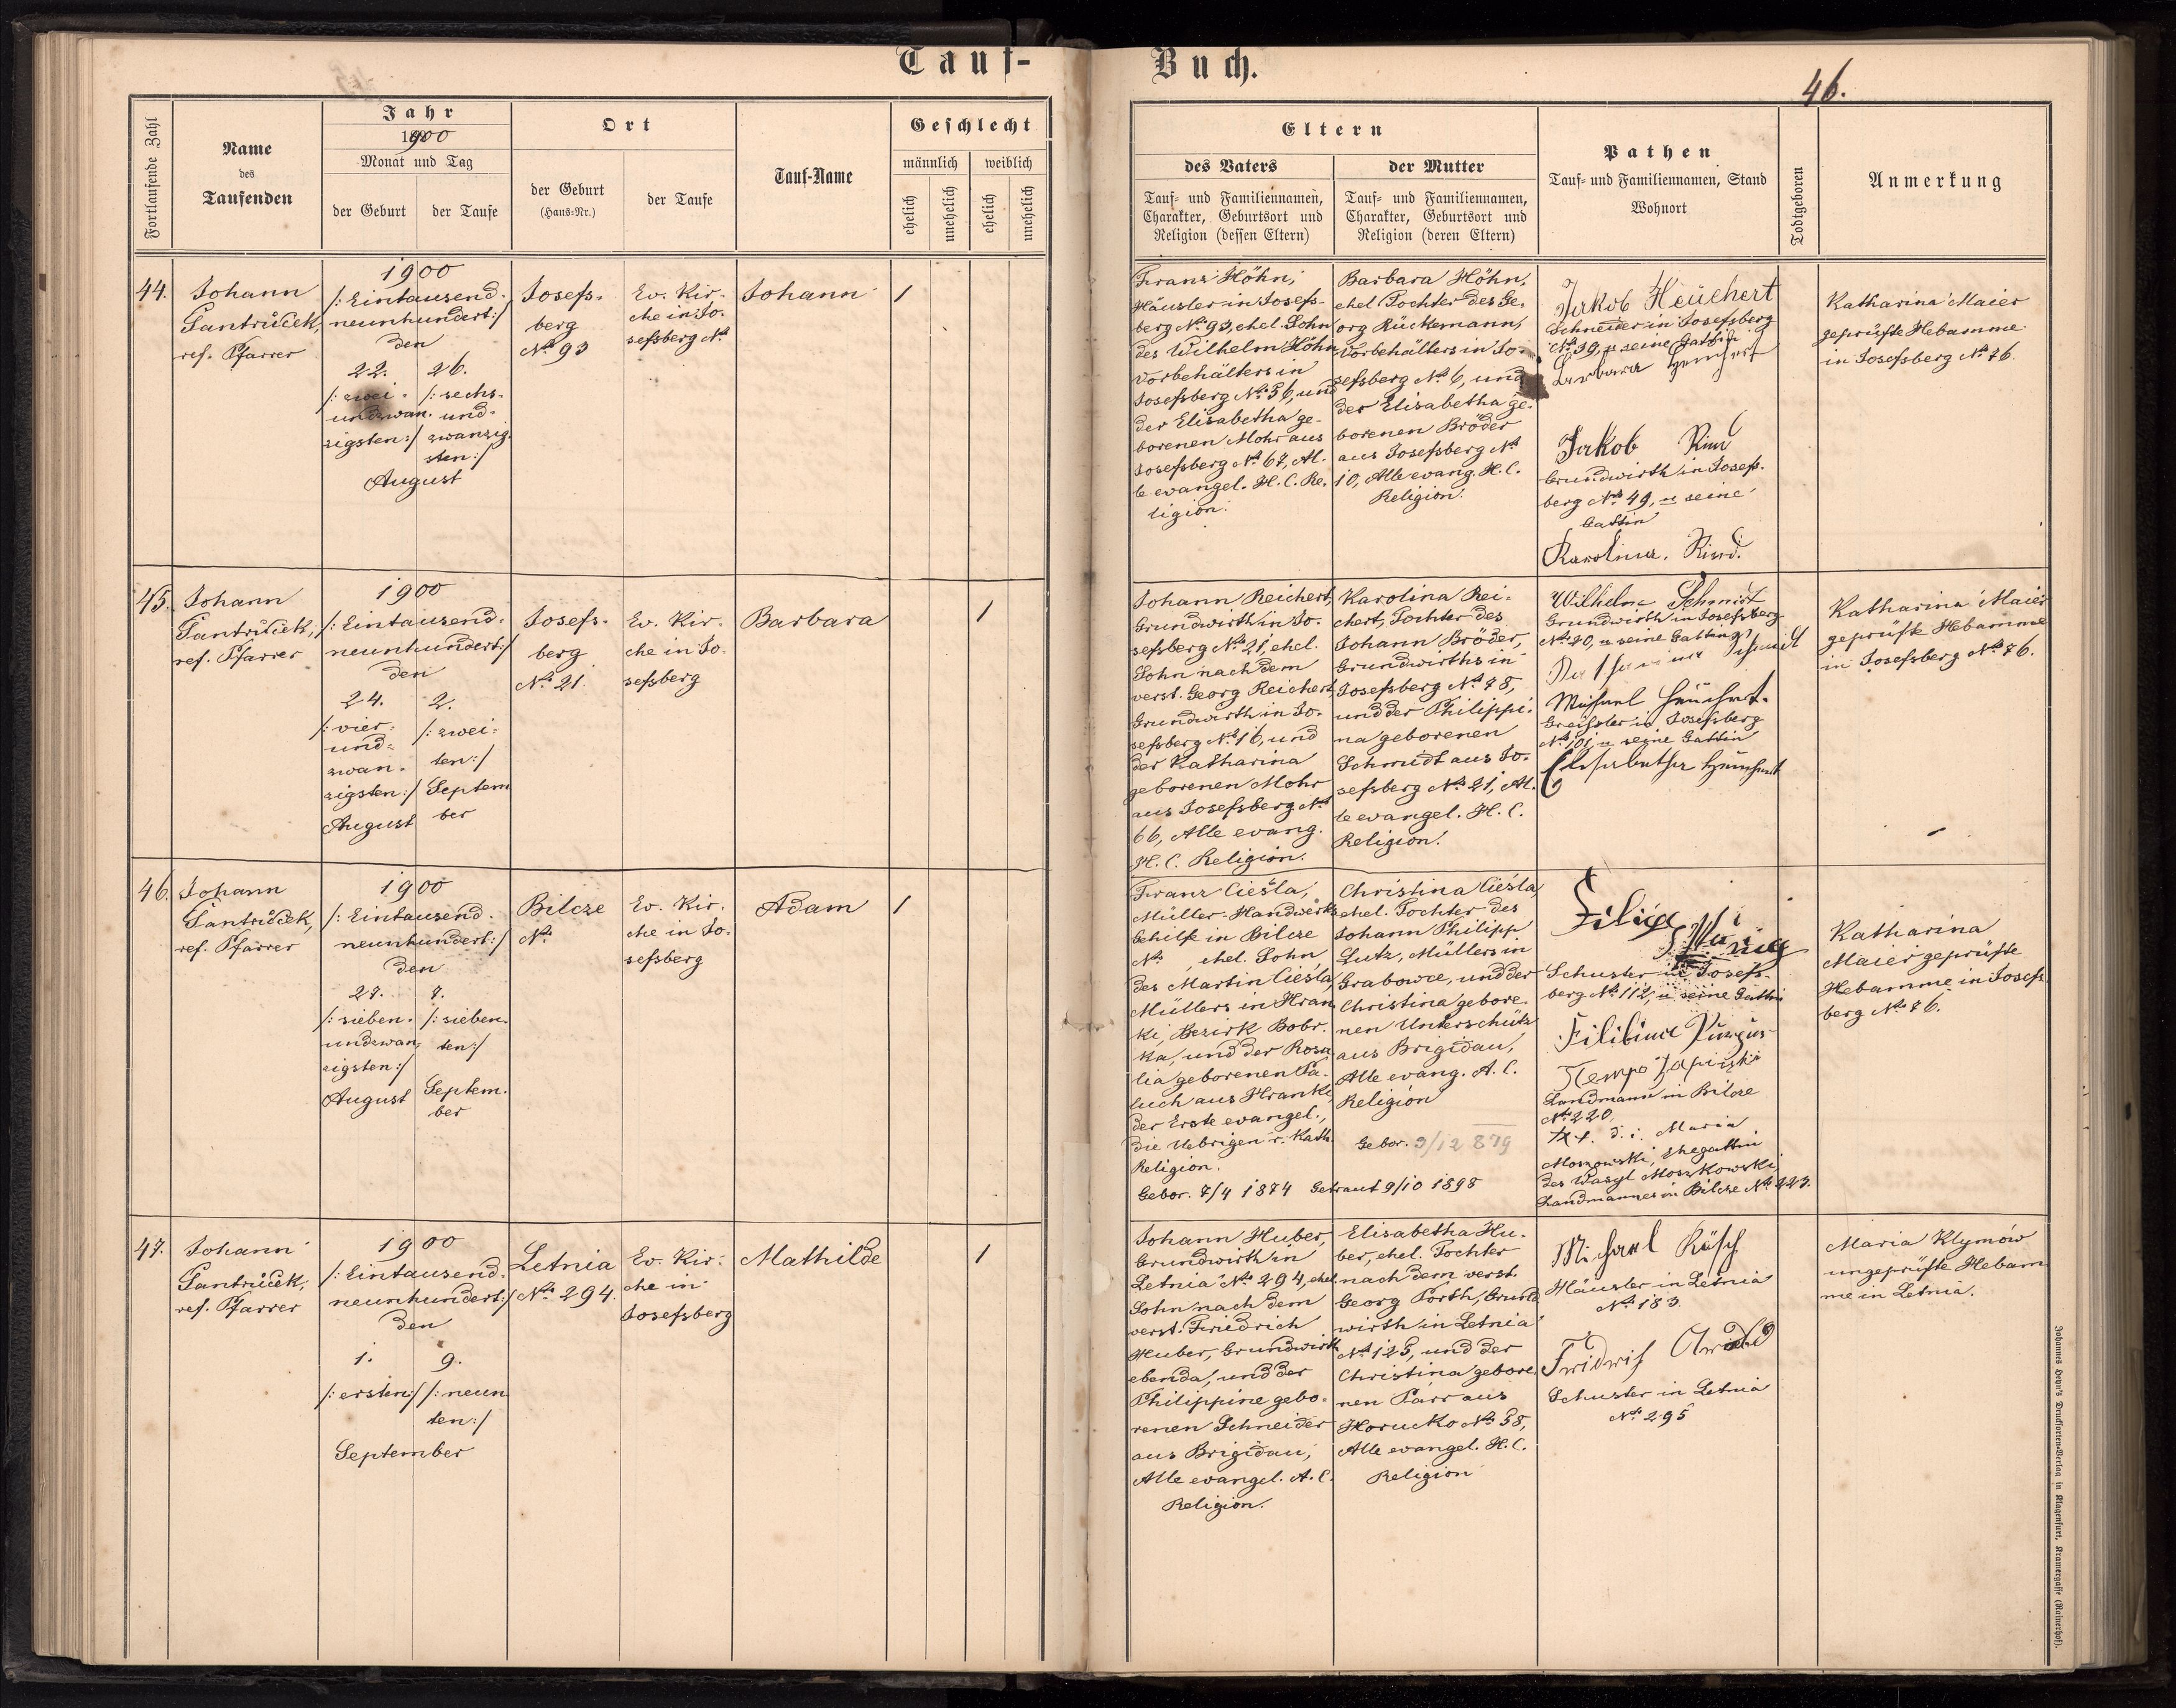 Tauf-
Buch.
46.
Fortlaufende Zahl
Name
des
Taufenden
Jahr
1900
Monat und Tag
der Geburt
der Taufe
Ort
der Geburt
(Haus-Nr.)
der Taufe
Tauf-Name
Geschlecht
männlich
weiblich
ehelich
unehelich
ehelich
unehelich
Eltern
des Vaters
Tauf- und Familiennamen,
Charakter, Geburtsort und
Religion (dessen Eltern)
der Mutter
Tauf- und Familiennamen,
Charakter, Geburtsort und
Religion (deren Eltern)
Pathen
Tauf- und Familiennamen, Stand
Wohnort
Todtgeboren
Anmerkung
44.
Johann
Pantrůček,
ref. Pfarrer
1900
/: Eintausend-
neunhundert :/
den
22.
/: zwei-
undzwan-
zigsten :/
26.
/: sechs-
und-
zwanzig-
sten :/
August
Josefs-
berg
No 93
Ev. Kir-
che in Jo-
sefsberg No
Johann
1
Franz Höhn,
Häusler in Josefs-
berg No 93, ehel. Sohn
des Wilhelm Höhn,
Vorbehälters in
Josefsberg No 56, und
der Elisabetha ge-
borenen Mohr aus
Josefsberg No 67, Al-
le evangel. H. C. Re-
ligion.
Barbara Höhn,
ehel Tochter des Ge-
org Rückemann,
Vorbehälters in Jo-
sefsberg No 6, und
der Elisabetha ge-
borenen Bröder
aus Josefsberg No
10, Alle evang. H. C.
Religion.
Jakob Heüchert
Schneider in Josefsberg
No 39, u seine Gattin
Barbara Heuchert
Jakob Rind
Grundwirth in Josefs-
berg No 49, u seine
Gattin
Karolina Rind.
Katharina Maier
geprüfte Hebamme
in Josefsberg No 76.
45.
Johann
Pantrůček,
ref. Pfarrer
1900
/: Eintausend-
neunhundert :/
den
24.
/: vier-
und-
zwan-
zigsten :/
August
2.
/: zwei-
ten :/
Septem
ber
Josefs-
berg
No 21.
Ev. Kir-
che in Jo-
sefsberg
Barbara
1
Johann Reichert,
Grundwirth in Jo-
sefsberg No 21, ehel.
Sohn nach dem
verst. Georg Reichert,
Grundwirth in Jo-
sefsberg No 16, und
der Katharina
geborenen Mohr
aus Josefsberg No
66, Alle evang.
H. C. Religion.
Karolina Rei-
chert, Tochter des
Johann Bröder,
Grundwirths in
Josefsberg No 78,
und der Philippi-
na geborenen
Schmidt aus Jo-
sefsberg No 21, Al-
le evangel. H. C.
Religion.
Wilhelm Schmidt
Grundwirth in Josefsberg
No 20, u seine Gattin
Katharina Schmidt
Michael Heuchert.
Greißler in Josefsberg
No 101, u seine Gattin
Elisabetha Heuchert
Katharina Maier
geprüfte Hebamme
in Josefsberg No 76.
46.
Johann
Pantrůček,
ref. Pfarrer
1900
/: Eintausend-
neunhundert :/
den
27.
/: sieben-
undzwan-
zigsten :/
August
7.
/: sieben-
ten :/
Septem-
ber
Bilcze
No
Ev. Kir-
che in Jo-
sefsberg
Adam
1
Franz Cieśla,
Müller-Handwerks
Gehilfe in Bilcze
No , ehel. Sohn
des Martin Cieśla,
Müllers in Hran-
ki, Bezirk Bobr-
ka, und der Rosa-
lia geborenen Pa-
luch aus Hranki,
der Erste evangel.,
die Uebrigen r. Kath.
Religion.
Gebor. 7/4 1874
Getraut 9/10 1898
Christina Cieśla,
ehel. Tochter des
Johann Philipp
Lutz, Müllers in
Grabowce, und der
Christina gebore-
nen Unterschütz
aus Brigidau,
Alle evang. A. C.
Religion
Gebor. 9/12 879
Filipp
Schuster in Josefs-
berg No 112, u seine Gattin
Filibina
Landmann in Bilcze
No 220,
d. i. Maria
Moszkowski, Ehegattin
des Wasyl Moszkowski,
Landmannes in Bilcze No 223.
Katharina
Maier geprüfte
Hebamme in Josefs-
berg No 76.
47.
Johann
Pantrůček,
ref. Pfarrer
1900
/: Eintausend-
neunhundert :/
den
1.
/: ersten :/
9.
/: neun
ten :/
September
Letnia
No 294.
Ev. Kir-
che in
Josefsberg
Mathilde
1
Johann Huber,
Grundwirth in
Letnia No 294, ehel.
Sohn nach dem
verst. Friedrich
Huber, Grundwirth
ebenda, und der
Philippine gebo-
renen Schneider
aus Brigidau,
Alle evangel. A. C.
Religion.
Elisabetha Hu-
ber, ehel. Tochter
nach dem verst.
Georg Porth, Grund
wirth in Letnia
No 125, und der
Christina gebore-
nen Parr aus
Horucko No 58,
Alle evangel. H. C.
Religion
Michael Rösch
Häusler in Letnia
No 183.
Fridrich
Schuster in Letnia
No 295
Maria Klymów
ungeprüfte Hebam
me in Letnia.
Johannes Heyn's Drucksorten-Verlag in Klagenfurt, Kramergasse (Rainerhof).